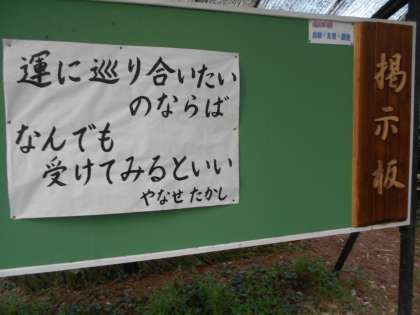 運に巡り合いたい
のならば
なんでも
受けてみるといい
やなせたかし
掲示板